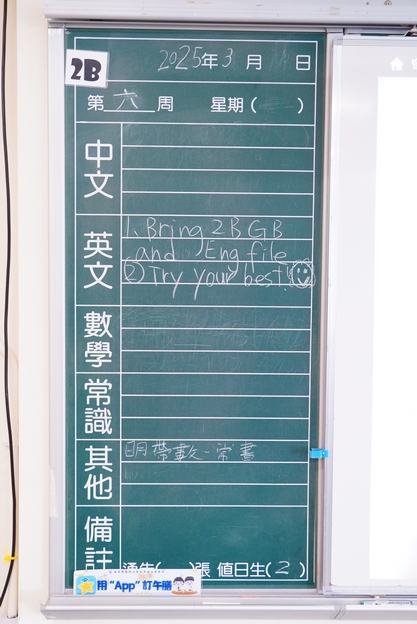 2B
2025年3月 日
第六周 星期( )
中文
英文
1. Bring 2B GB
and Eng file
② Try your best!
數學
常識
其他
明帶數、常書
備註
通告( )張 值日生(2)
用“App”訂午膳